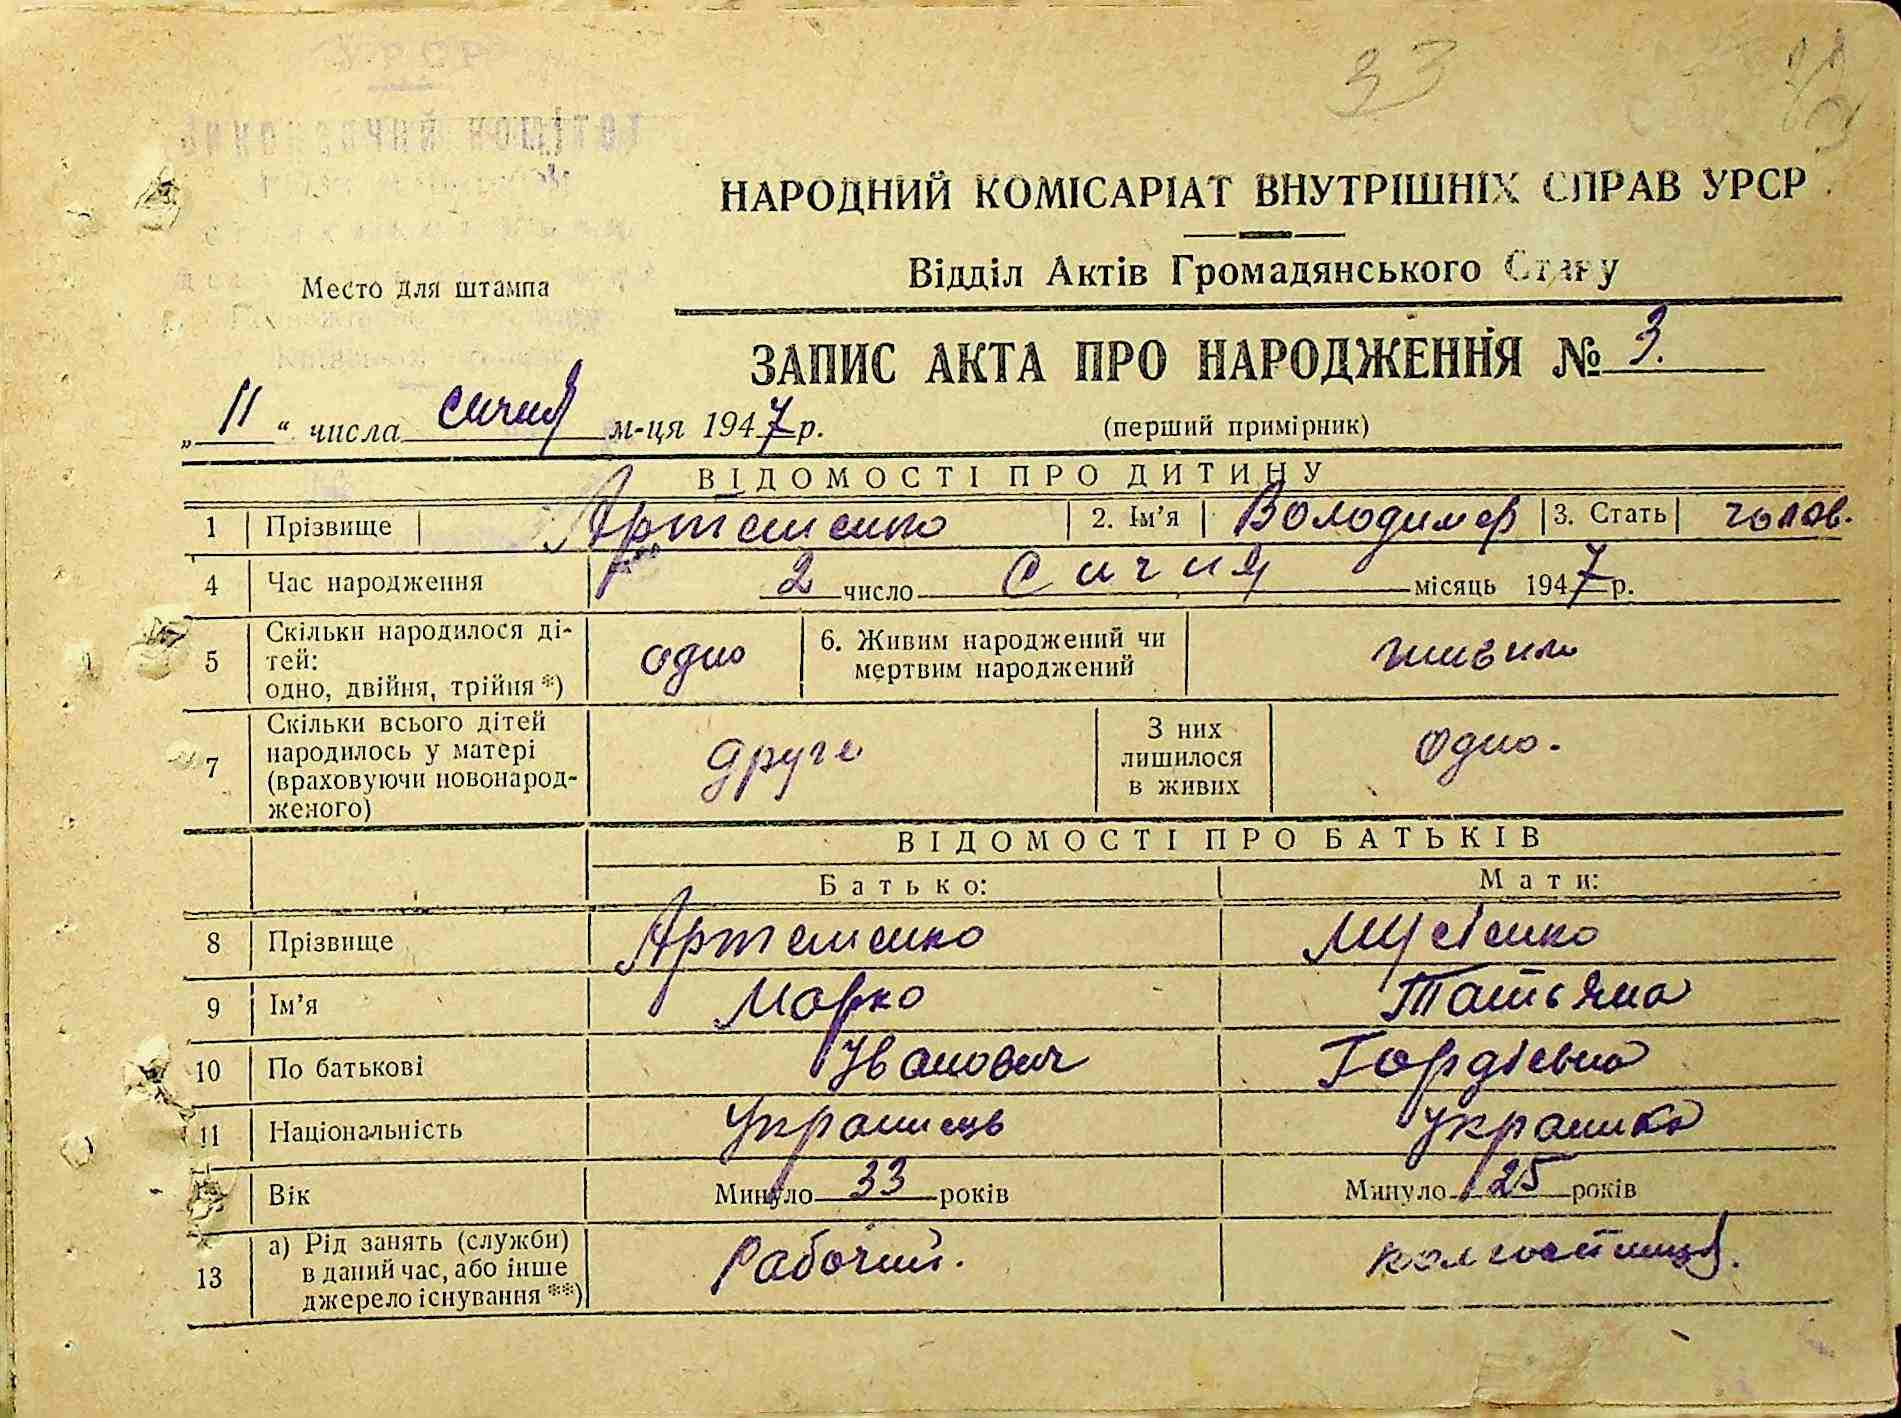 33
НАРОДНИЙ КОМІСАРІАТ ВНУТРІШНІХ СПРАВ УРСР
Відділ Актів Громадянського Стану
Место для штампа
ЗАПИС АКТА ПРО НАРОДЖЕННЯ № 3.
„ 11 “ числа січня м-ця 1947 р. (перший примірник)
ВІДОМОСТІ ПРО ДИТИНУ
1 Прізвище Артеменко 2. Ім'я Володимер 3. Стать чолов.
4 Час народження 2 число Січня місяць 1947 р.
5 Скільки народилося ді-
тей:
одно, двійня, трійня *) одно 6. Живим народжений чи
мертвим народжений живим
7 Скільки всього дітей
народилось у матері
(враховуючи новонарод-
женого) друге З них
лишилося
в живих одно.
ВІДОМОСТІ ПРО БАТЬКІВ
Батько: Мати:
8 Прізвище Артеменко
9 Ім'я Марко Татьяна
10 По батькові Іванович Гордіевна
11 Національність Українець українка
Вік Минуло 33 років Минуло 25 років
13 а) Рід занять (служби)
в даний час, або інше
джерело існування **) Рабочий. колгостниця.